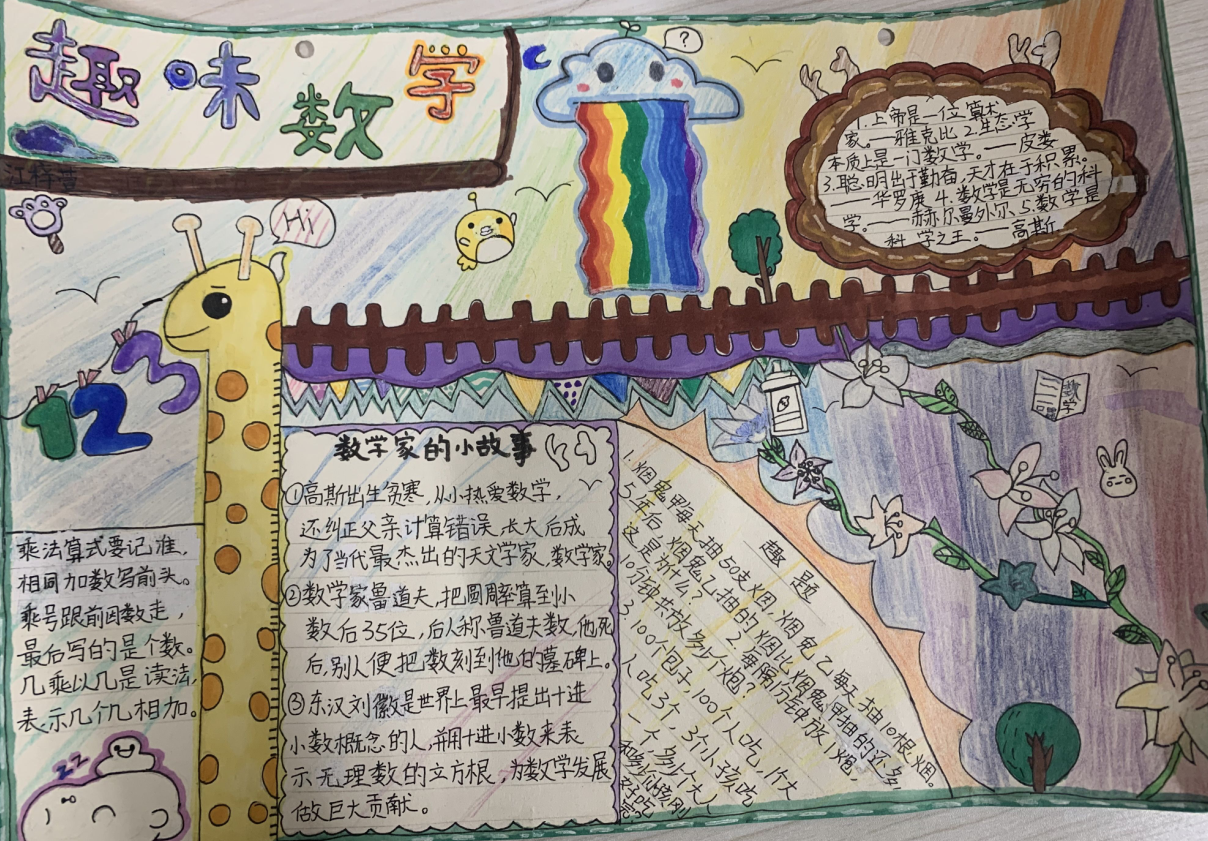 趣味数学
Hi
?
1.上帝是一位算术
家。——雅克比 2.生态学
本质上是一门数学。——皮娄
3.聪明出于勤奋,天才在于积累。
——华罗庚 4.数学是无穷的科
学。——赫尔曼外尔 5.数学是
科学之王。——高斯
123
数学
乘法算式要记准,
相同加数写前头。
乘号跟前因数走,
最后写的是个数。
几乘以几是读法,
表示几个几相加。
zz
数学家的小故事
①高斯出生贫寒,从小热爱数学,
还纠正父亲计算错误,长大后成
为了当代最杰出的天文学家、数学家。
②数学家鲁道夫,把圆周率算到小
数后35位,后人称鲁道夫数,他死
后,别人便把数刻到他的墓碑上。
③东汉刘徽是世界上最早提出十进
小数概念的人,并用十进小数来表
示无理数的立方根,为数学发展
做巨大贡献。
趣题
1.烟鬼甲每天抽50支烟,烟鬼乙每天抽10根烟。
5年后,烟鬼乙抽的烟比烟鬼甲抽的还多,
这是为什么? 2.每隔1分钟放1炮,
10分钟共放多少个炮?
3.100个包子,100个人吃,1个大
人吃3个,3个小孩吃
一个,多少个大人
和多少小孩刚
好吃完